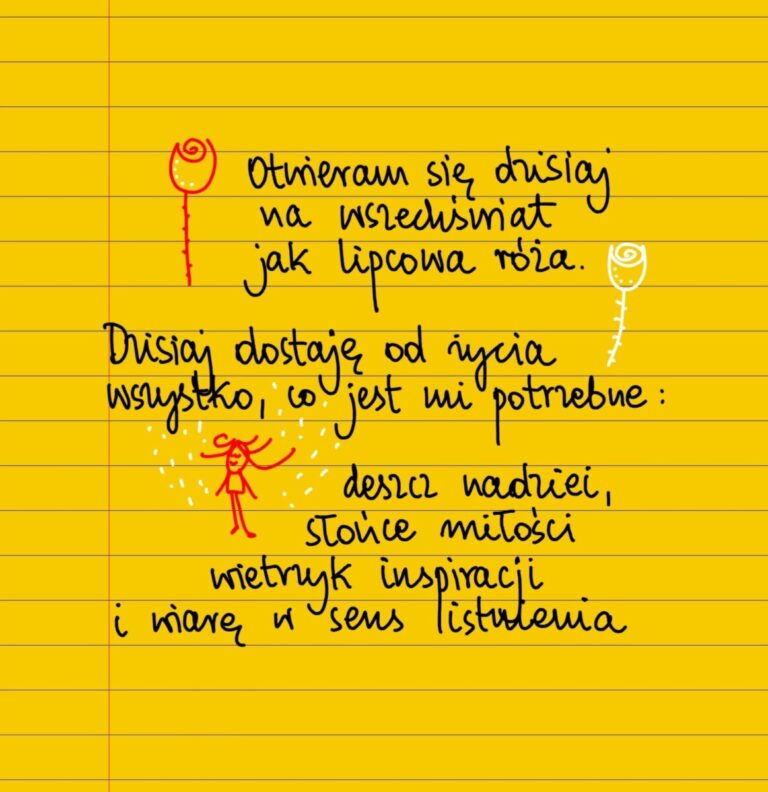 Otwieram się dzisiaj
na wszechświat
jak lipcowa róża.
Dzisiaj dostaję od życia
wszystko, co jest mi potrzebne:
deszcz nadziei,
słońce miłości
wietrzyk inspiracji
i wiarę w sens listnienia